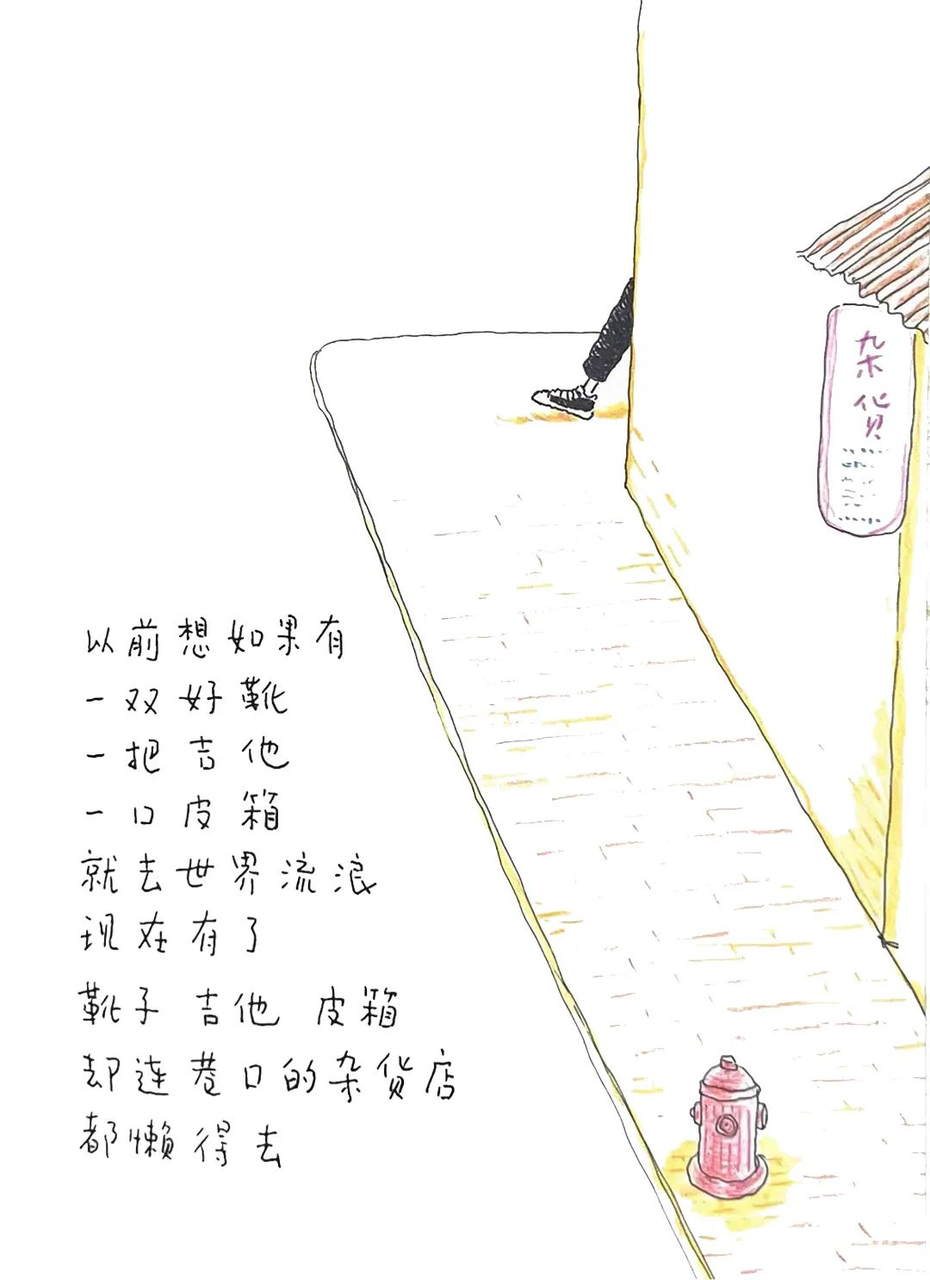 以前想如果有
一双好靴
一把吉他
一口皮箱
就去世界流浪
现在有了
靴子 吉他 皮箱
却连巷口的杂货店
都懒得去
杂货